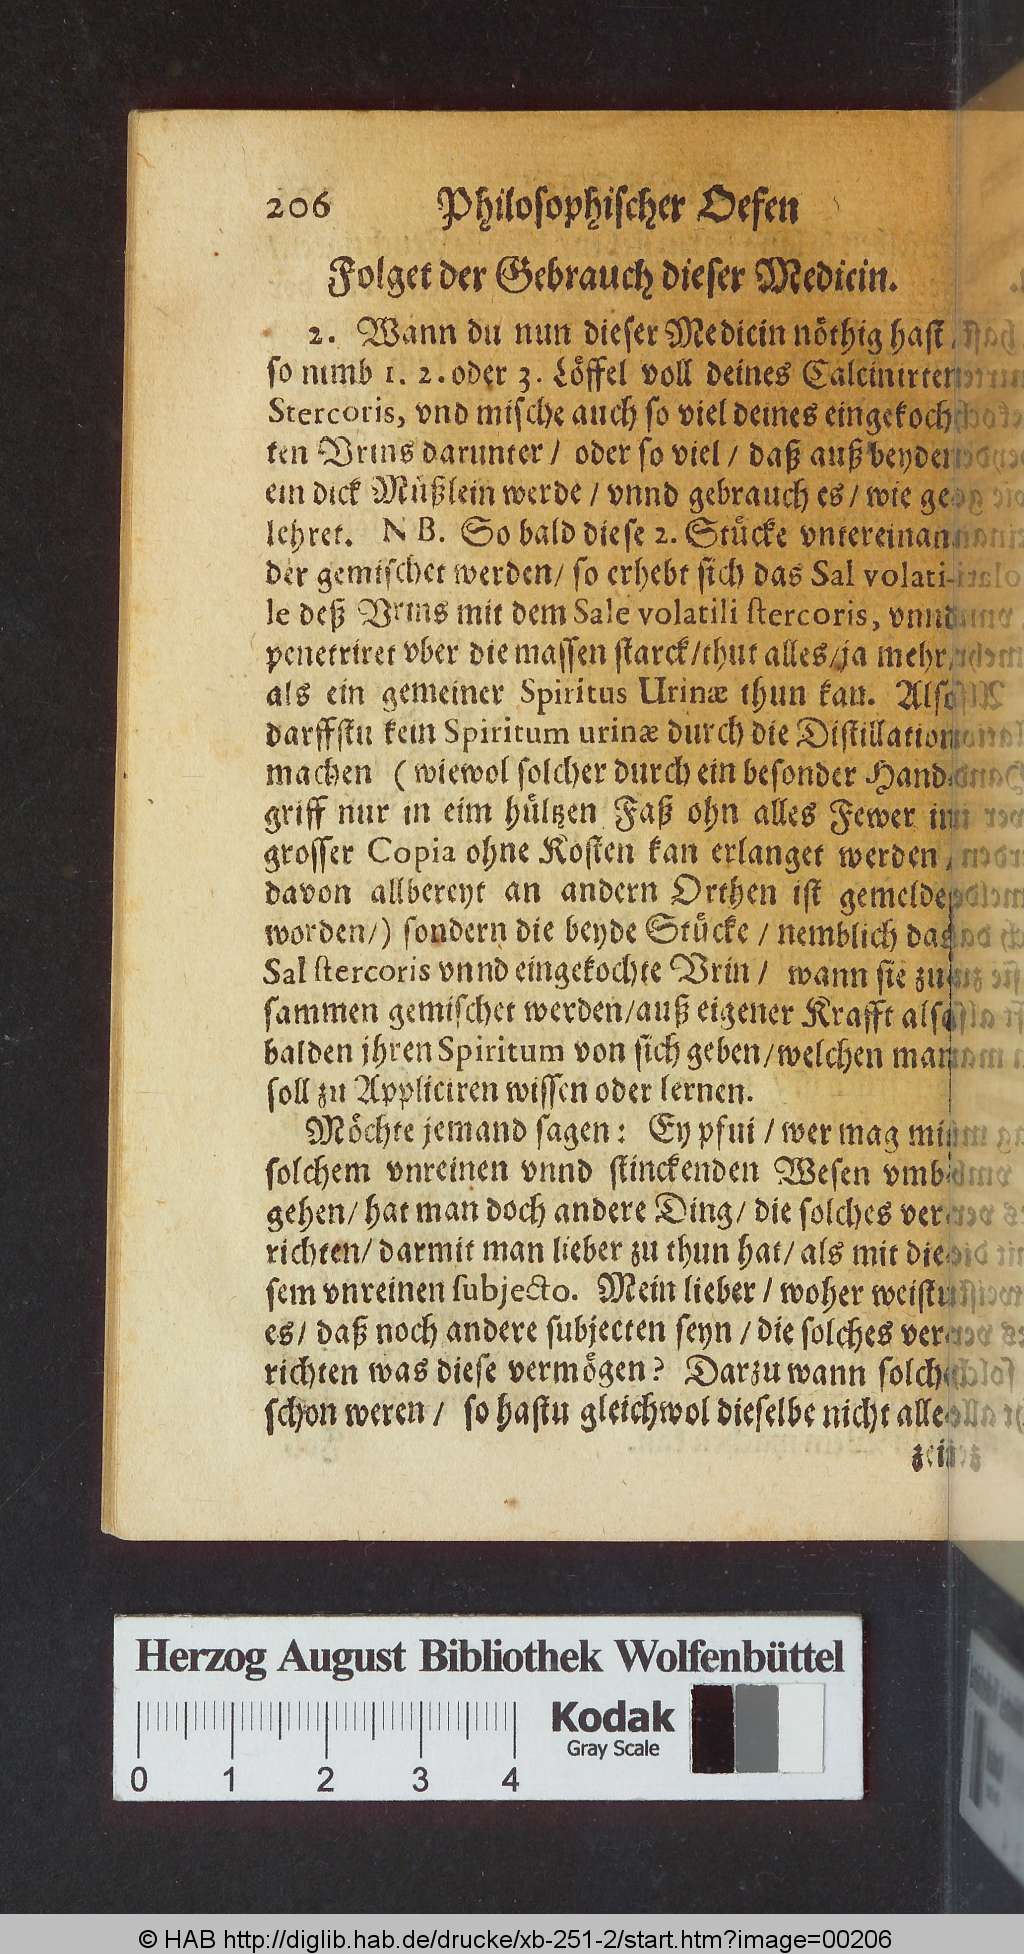 206 Philosophischer Oefen
Folget der Gebrauch dieser Medicin.
2. Wann du nun dieser Medicin nöthig hast,
so nimb 1. 2. oder 3. Löffel voll deines Calcinirten
Stercoris, vnd mische auch so viel deines eingekoch-
ten Vrins darunter / oder so viel / daß auß beyden
ein dick Müßlein werde / vnnd gebrauch es / wie ge-
lehret. NB. So bald diese 2. Stücke vntereinan-
der gemischet werden / so erhebt sich das Sal volati-
le deß Vrins mit dem Sale volatili stercoris, vnnd
penetriret vber die massen starck / thut alles / ja mehr,
als ein gemeiner Spiritus Urinæ thun kan. Also
darffstu kein Spiritum urinæ durch die Distillation
machen (wiewol solcher durch ein besonder Hand-
griff nur in eim hültzen Faß ohn alles Fewer in
grosser Copia ohne Kosten kan erlanget werden,
davon allbereyt an andern Orthen ist gemeldet
worden /) sondern die beyde Stücke / nemblich das
Sal stercoris vnnd eingekochte Vrin / wann sie zu-
sammen gemischet werden / auß eigener Krafft also
balden jhren Spiritum von sich geben / welchen man
soll zu Appliciren wissen oder lernen.
Möchte jemand sagen: Ey pfui / wer mag mit
solchem vnreinen vnnd stinckenden Wesen vmb-
gehen / hat man doch andere Ding / die solches ver-
richten / darmit man lieber zu thun hat / als mit die-
sem vnreinen subjecto. Mein lieber / woher weistu
es / daß noch andere subjecten seyn / die solches ver-
richten was diese vermögen? Darzu wann solche
schon weren / so hastu gleichwol dieselbe nicht alle-
zeit
Herzog August Bibliothek Wolfenbüttel
Kodak
Gray Scale
0 1 2 3 4
© HAB http://diglib.hab.de/drucke/xb-251-2/start.htm?image=00206